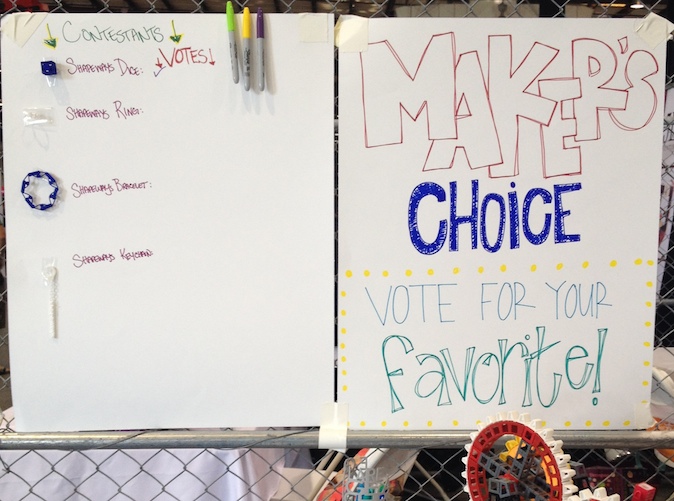 CONTESTANTS
VOTES
SHAPEWAYS DICE:
SHAPEWAYS RING:
SHAPEWAYS BRACELET:
SHAPEWAYS KEYCHAIN
MAKER'S
CHOICE
VOTE FOR YOUR
favorite!